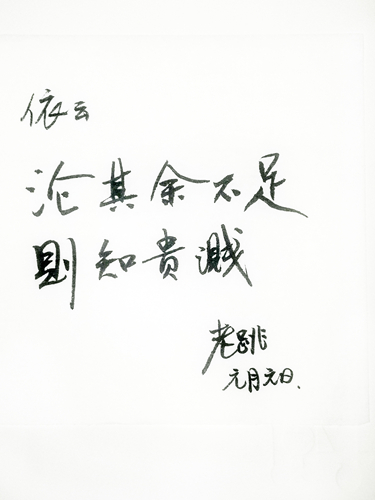 依云
沦其余不足
则知贵溅
老跳
元月元日.